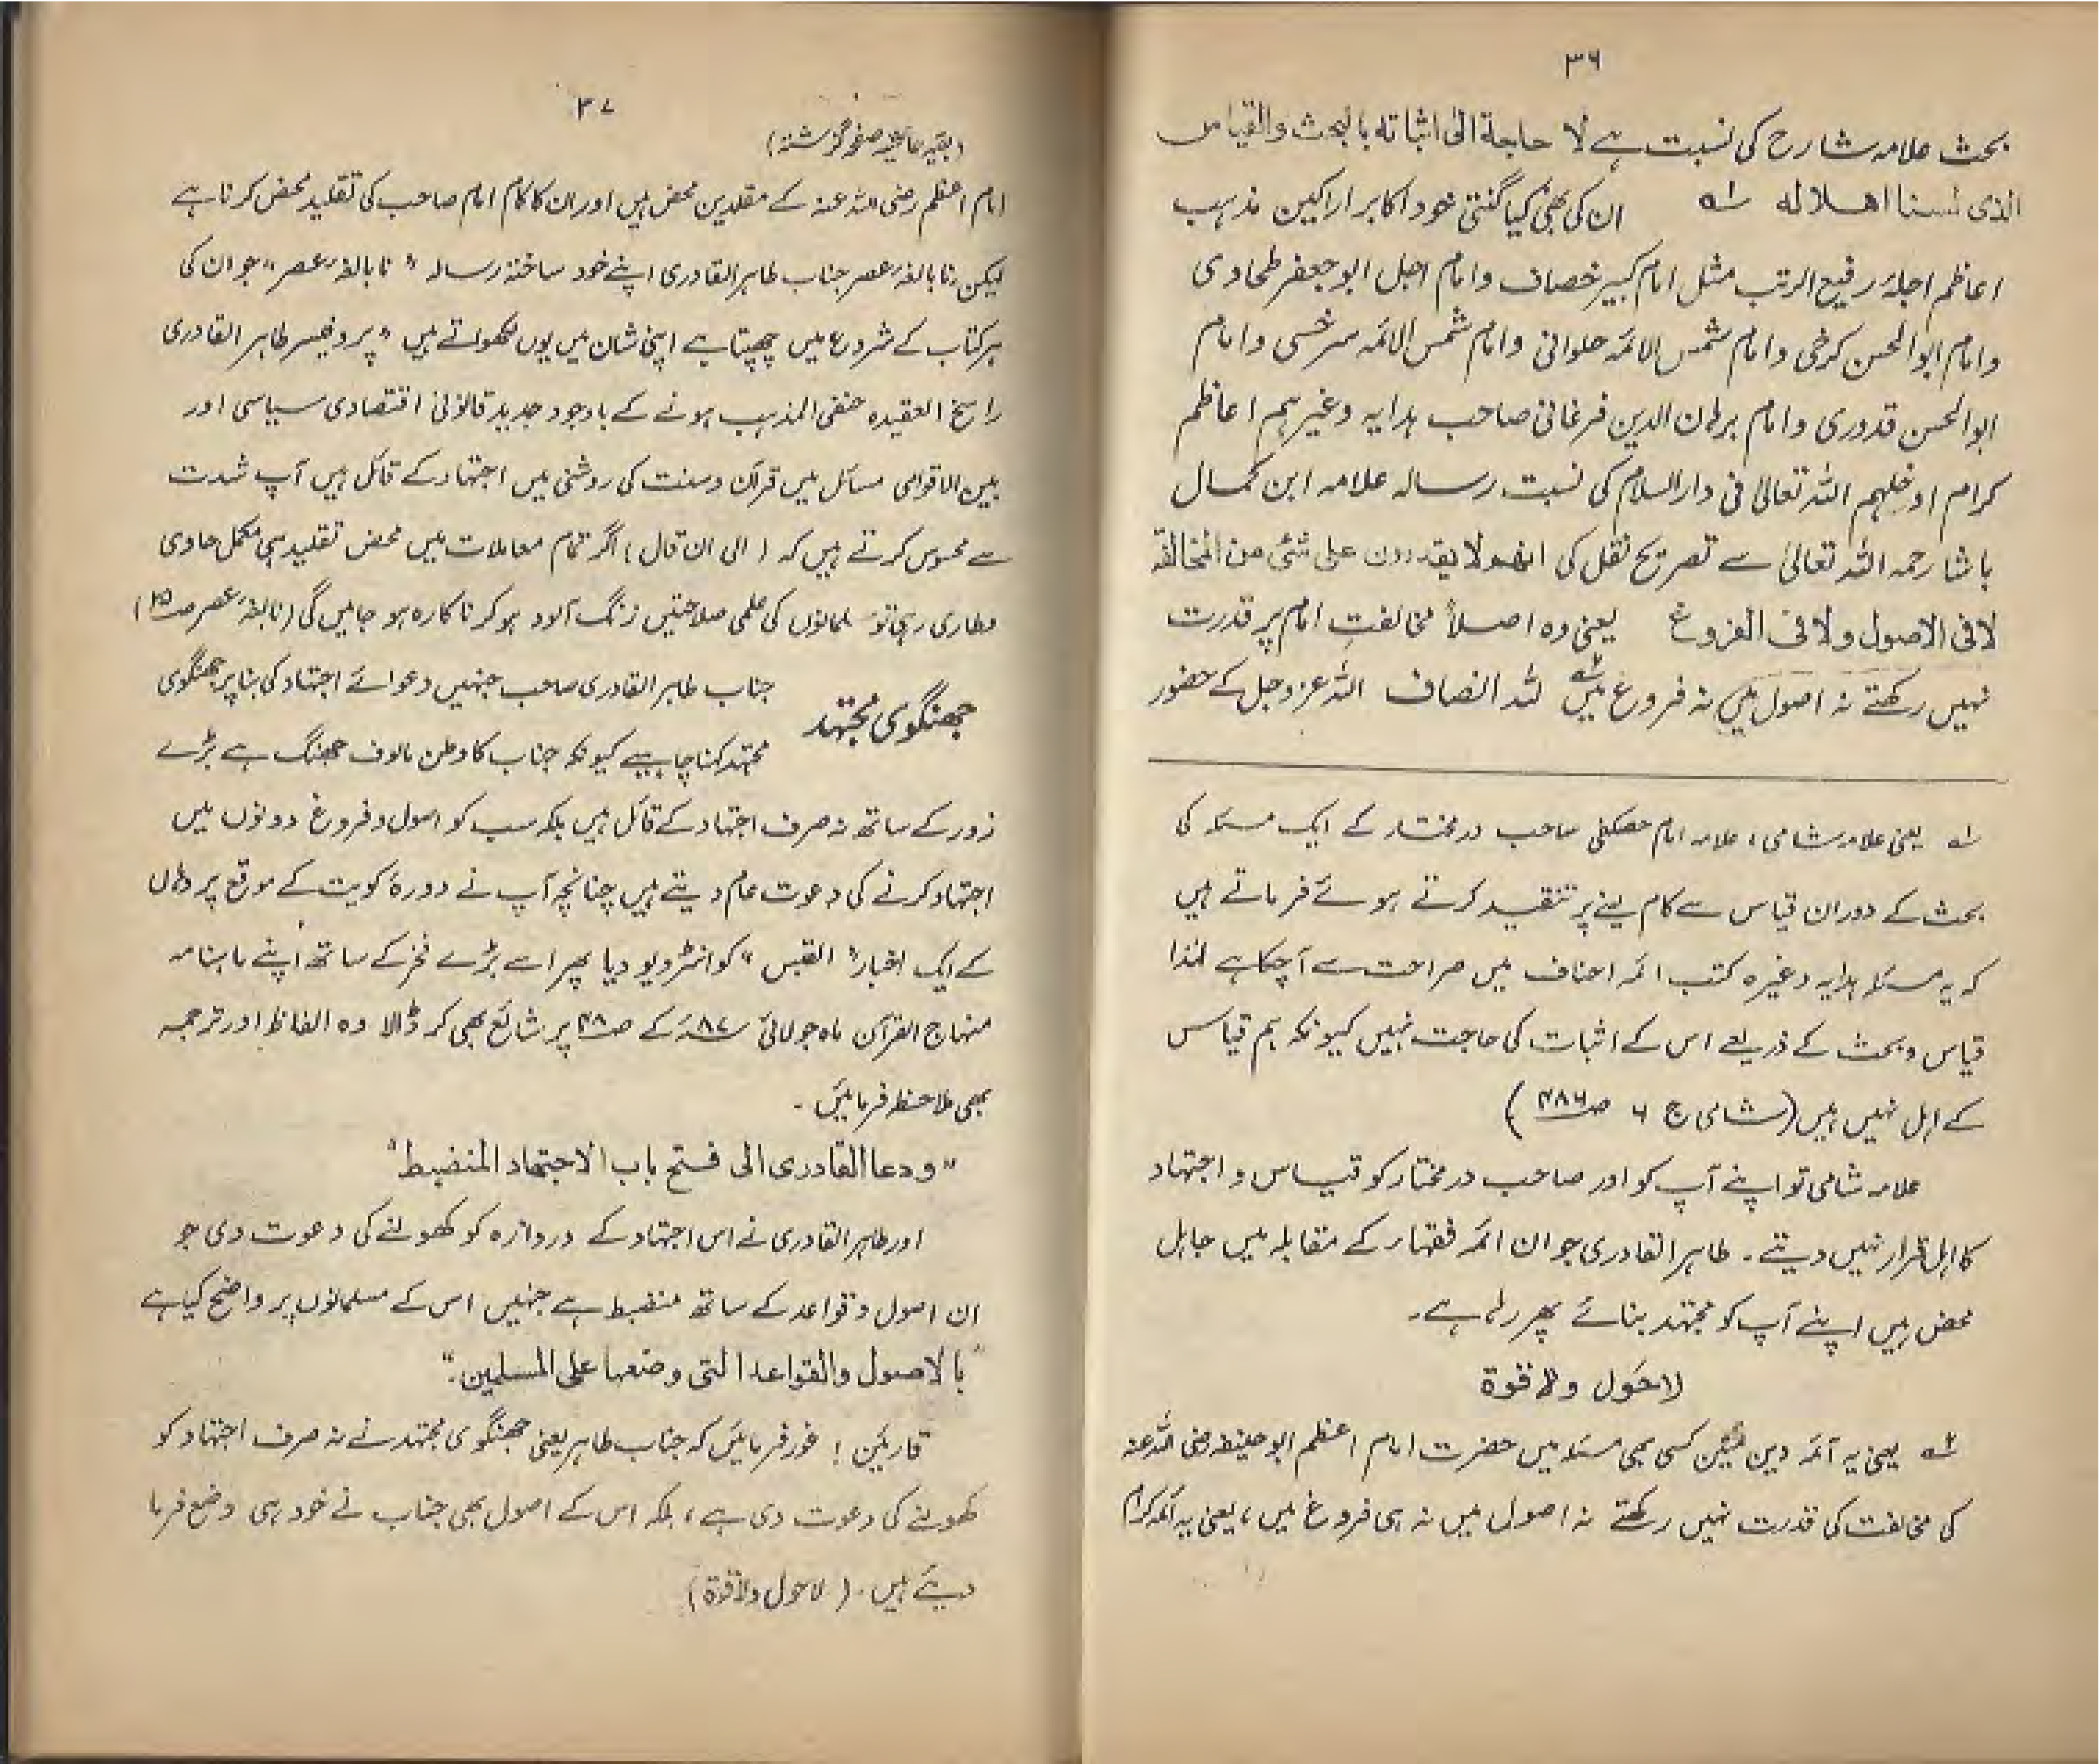 ۳۶
بحث علامہ شارح کی نسبت ہے لا حاجة الی اثباته بالبحث والقیاس
الذی لسنا اهلا له ؎۱ ان کی بھی کیا گنتی خود اکابر اراکین مذہب
اعاظم اجلۂ رفیع الرتب مثل امام کبیر خصاف وامام اجل ابو جعفر طحاوی
وامام ابوالحسن کرخی وامام شمس الائمہ حلوانی وامام شمس الائمہ سرخسی وامام
ابوالحسن قدوری وامام برہان الدین فرغانی صاحب ہدایہ وغیرہم اعاظم
کرام ادخلہم اللہ تعالیٰ فی دارالسلام کی نسبت رسالہ علامہ ابن کمال
باشا رحمہ اللہ تعالیٰ سے تصریح نقل کی انهم لا یقدرون علی شئی من المخالفة
لا فی الاصول ولا فی الفروع یعنی وہ اصلاً مخالفتِ امام پر قدرت
نہیں رکھتے نہ اصول میں نہ فروع میں ؎۲ للہ انصاف اللہ عزوجل کے حضور
؎۱ یعنی علامہ شامی، علامہ امام حصکفی صاحب درمختار کے ایک مسئلہ کی
بحث کے دوران قیاس سے کام لینے پر تنقید کرتے ہوئے فرماتے ہیں
کہ یہ مسئلہ ہدایہ وغیرہ کتب ائمہ احناف میں صراحت سے آچکا ہے لہٰذا
قیاس و بحث کے ذریعے اس کے اثبات کی حاجت نہیں کیونکہ ہم قیاس
کے اہل نہیں ہیں (شامی ج ۶ ص ۴۸۶)
علامہ شامی تو اپنے آپ کو اور صاحب درمختار کو قیاس و اجتہاد
کا اہل قرار نہیں دیتے۔ طاہر القادری جو ان ائمہ فقہار کے مقابلہ میں جاہل
محض ہیں اپنے آپ کو مجتہد بنائے پھر رہا ہے۔
لاحول ولا قوة
؎۲ یعنی یہ آئمہ دین کسی بھی مسئلہ میں حضرت امام اعظم ابوحنیفہ رضی اللہ عنہ
کی مخالفت کی قدرت نہیں رکھتے نہ اصول میں نہ ہی فروع میں، یعنی یہ آئمہ کرام
۳۷
(بقیہ حاشیہ صفحہ گزشتہ)
امام اعظم رضی اللہ عنہ کے مقلدین محض ہیں اور ان کا کام امام صاحب کی تقلید محض کرنا ہے
لیکن نابالغۂ عصر جناب طاہر القادری اپنے خود ساختہ رسالہ "نابالغۂ عصر" جو ان کی
ہر کتاب کے شروع میں چھپتا ہے اپنی شان میں یوں لکھواتے ہیں "پروفیسر طاہر القادری
راسخ العقیدہ حنفی المذہب ہونے کے باوجود جدید قانونی اقتصادی سیاسی اور
بین الاقوامی مسائل میں قرآن و سنت کی روشنی میں اجتہاد کے قائل ہیں آپ شدت
سے محسوس کرتے ہیں کہ (الی ان قال) اگر تمام معاملات میں محض تقلید ہی مکمل حاوی
وطاری رہی تو مسلمانوں کی علمی صلاحیتیں زنگ آلود ہو کر ناکارہ ہو جائیں گی (نابالغۂ عصر ص ۲۵)
جھنگوی مجتہد
جناب طاہر القادری صاحب جنہیں دعوائے اجتہاد کی بنا پر جھنگوی
مجتہد کہنا چاہیے کیونکہ جناب کا وطن مالوف جھنگ ہے بڑے
زور کے ساتھ نہ صرف اجتہاد کے قائل ہیں بلکہ سب کو اصول و فروع دونوں میں
اجتہاد کرنے کی دعوت عام دیتے ہیں چنانچہ آپ نے دورۂ کویت کے موقع پر وہاں
کے ایک اخبار "القبس" کو انٹرویو دیا پھر اسے بڑے فخر کے ساتھ اپنے ماہنامہ
منہاج القرآن ماہ جولائی ۸۷ء کے ص ۴۸ پر شائع بھی کر ڈالا وہ الفاظ اور ترجمہ
بھی ملاحظہ فرمائیں۔
"ودعا القادری الی فتح باب الاجتهاد المنضبط"
اور طاہر القادری نے اس اجتہاد کے دروازہ کو کھولنے کی دعوت دی جو
ان اصول و قواعد کے ساتھ منضبط ہے جنہیں اس کے مسلمانوں پر واضح کیا ہے
"بالاصول والقواعد التی وضعها علی المسلمین"۔
قارئین! غور فرمائیں کہ جناب طاہر یعنی جھنگوی مجتہد نے نہ صرف اجتہاد کو
کھولنے کی دعوت دی ہے، بلکہ اس کے اصول بھی جناب نے خود ہی وضع فرما
دیئے ہیں۔ (لاحول ولاقوة)